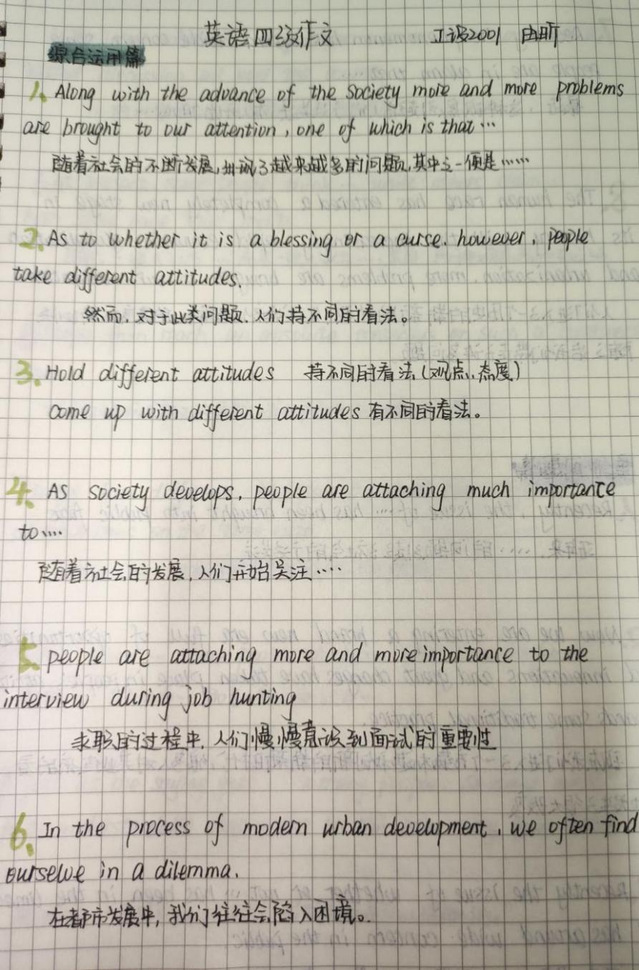 英语四级作文 卫设2001 由昕
综合运用篇
1. Along with the advance of the society more and more problems
are brought to our attention, one of which is that…
随着社会的不断发展,出现了越来越多的问题,其中之一便是……
2. As to whether it is a blessing or a curse. however, people
take different attitudes.
然而,对于此类问题,人们持不同的看法。
3. Hold different attitudes 持不同的看法(观点、态度)
Come up with different attitudes 有不同的看法。
4. As society develops, people are attaching much importance
to……
随着社会的发展,人们开始关注……
5. people are attaching more and more importance to the
interview during job hunting
求职的过程中,人们慢慢意识到面试的重要性
6. In the process of modern urban development, we often find
ourselve in a dilemma.
在都市发展中,我们往往会陷入困境。